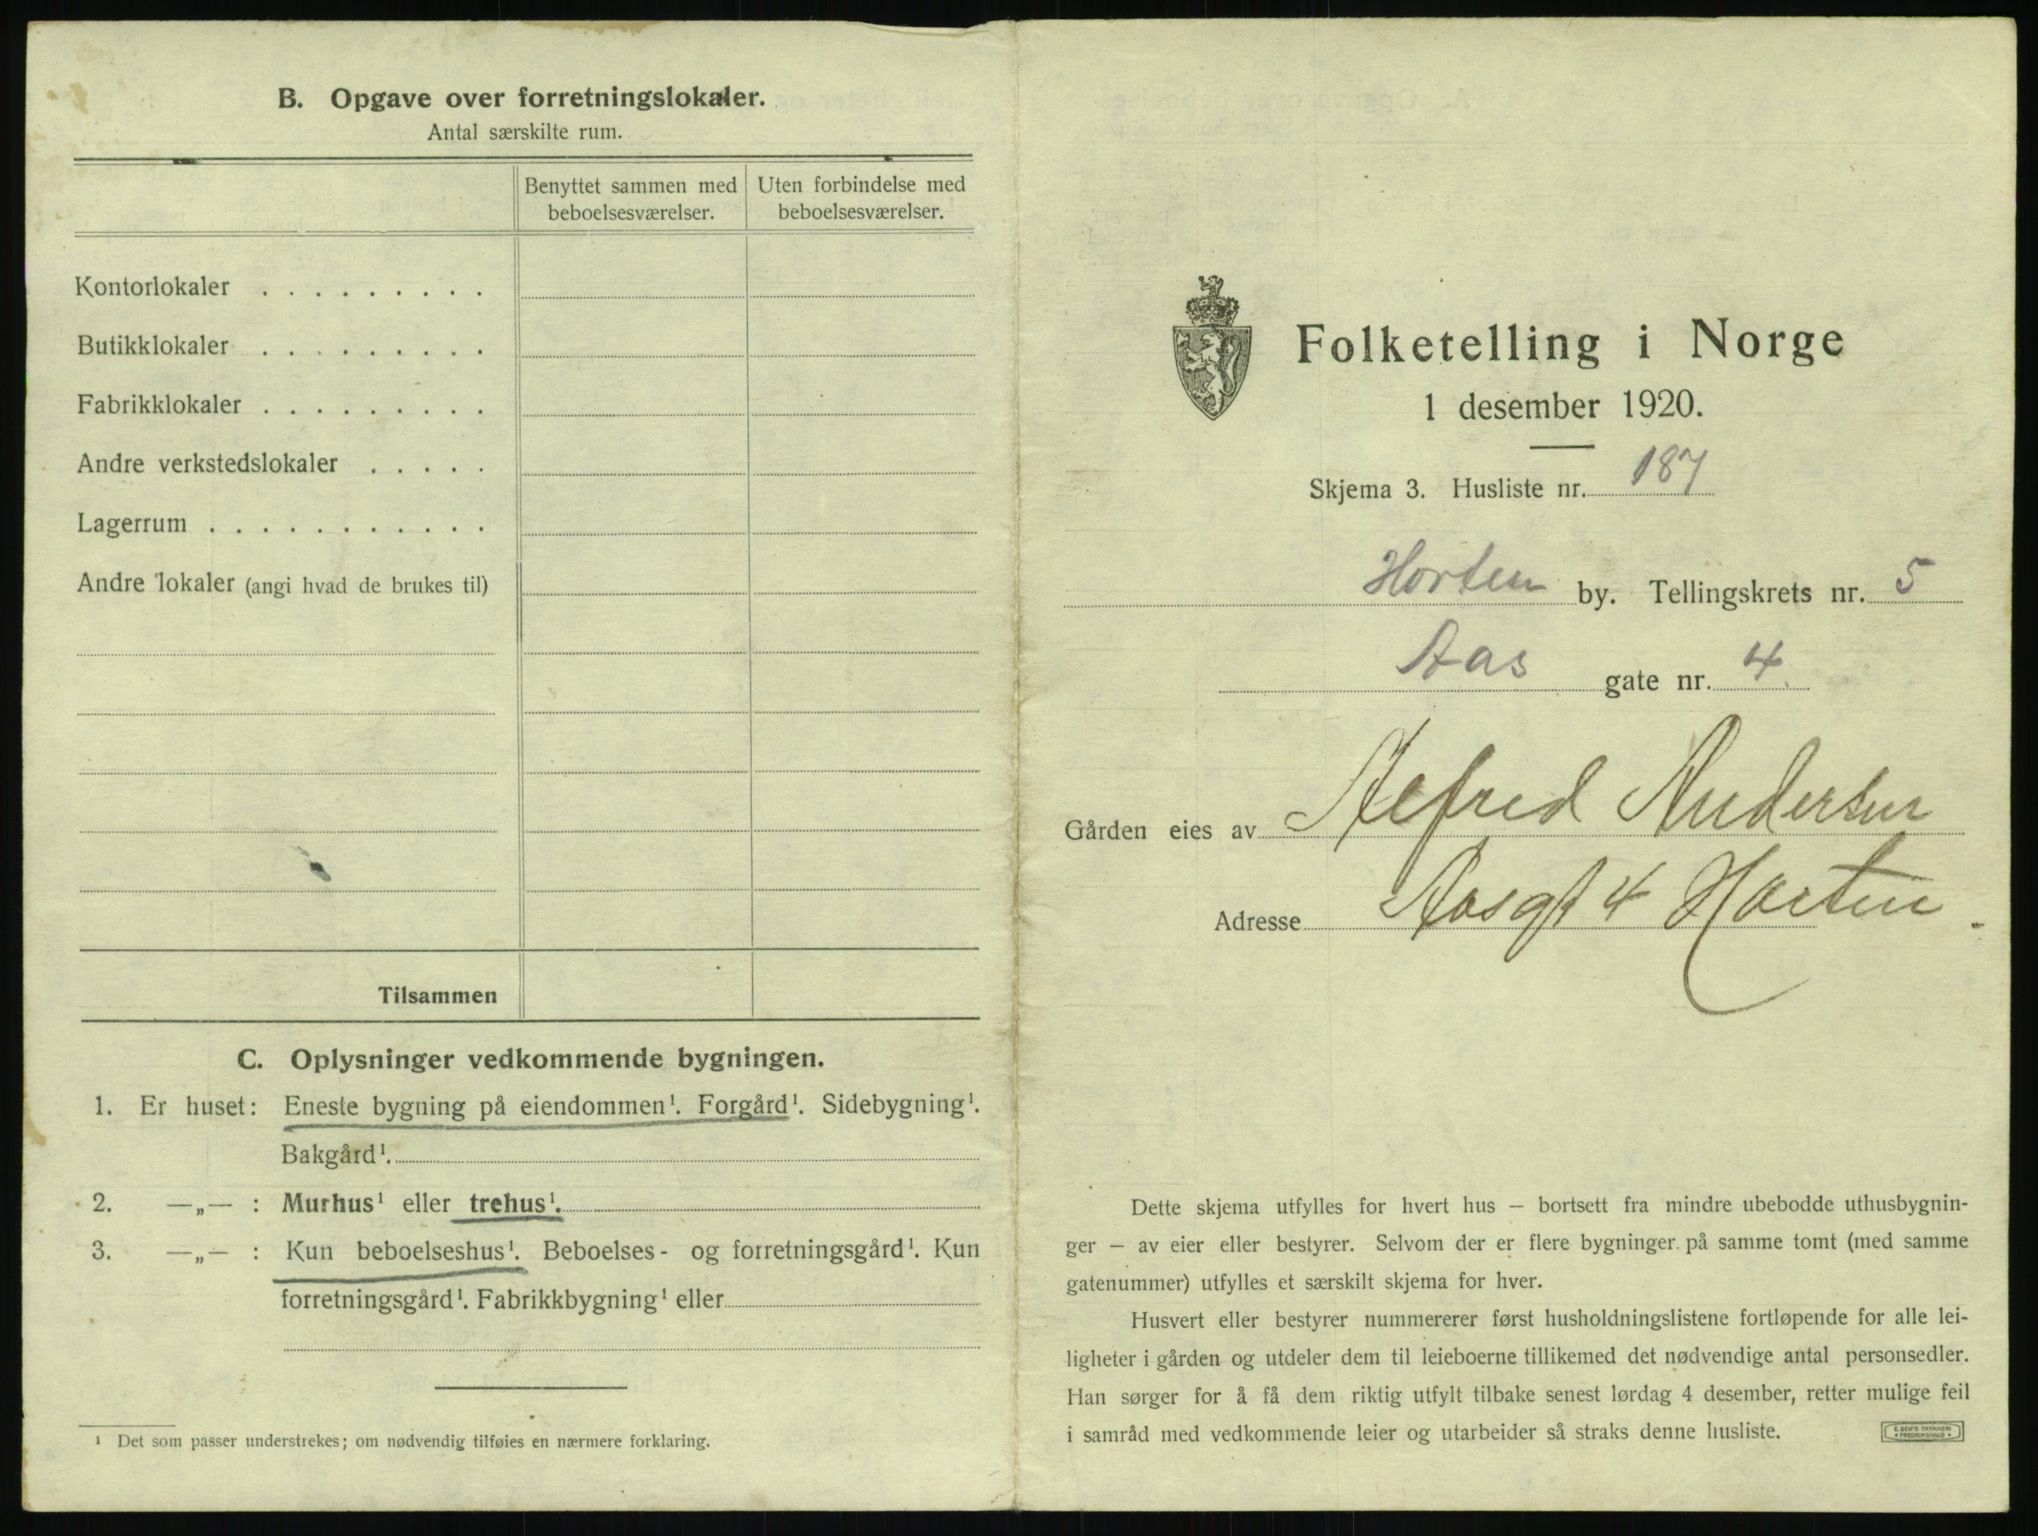 B. Opgave over forretningslokaler.
Antal særskilte rum.
Benyttet sammen med beboelsesværelser.
Uten forbindelse med beboelsesværelser.
Kontorlokaler . . . . . . . . .
Butikklokaler . . . . . . . . .
Fabrikklokaler . . . . . . . . .
Andre verkstedslokaler . . . . .
Lagerrum . . . . . . . . . . .
Andre lokaler (angi hvad de brukes til)
Tilsammen
C. Oplysninger vedkommende bygningen.
1. Er huset: Eneste bygning på eiendommen¹. Forgård¹. Sidebygning¹.
Bakgård¹.
2. —„— : Murhus¹ eller trehus¹.
3. —„— : Kun beboelseshus¹. Beboelses- og forretningsgård¹. Kun
forretningsgård¹. Fabrikkbygning¹ eller
¹ Det som passer understrekes; om nødvendig tilføies en nærmere forklaring.
Folketelling i Norge
1 desember 1920.
Skjema 3. Husliste nr. 187
Horten by. Tellingskrets nr. 5
Aas gate nr. 4
Gården eies av Alfred Andersen
Adresse Aasgt 4 Horten
Dette skjema utfylles for hvert hus – bortsett fra mindre ubebodde uthusbygnin-
ger – av eier eller bestyrer. Selvom der er flere bygninger på samme tomt (med samme
gatenummer) utfylles et særskilt skjema for hver.
Husvert eller bestyrer nummererer først husholdningslistene fortløpende for alle lei-
ligheter i gården og utdeler dem til leieboerne tillikemed det nødvendige antal personsedler.
Han sørger for å få dem riktig utfylt tilbake senest lørdag 4 desember, retter mulige feil
i samråd med vedkommende leier og utarbeider så straks denne husliste.
E. SEM'S TRYKKERI
FREDRIKSHALD